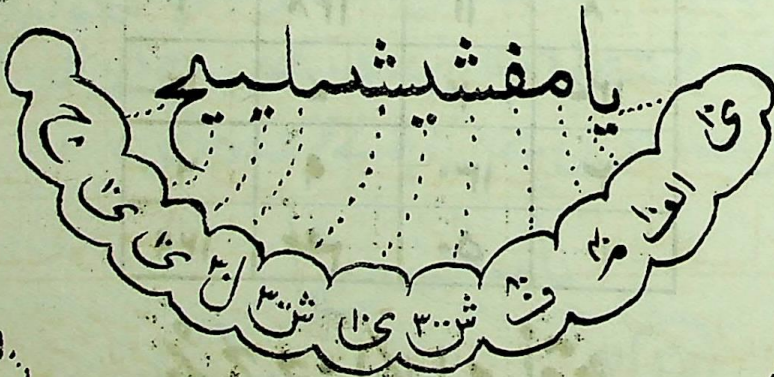 يا مفشيشليح
ى ١٠
الف ١
م ٤٠
ف ٨٠
ش ٣٠٠
ى ١٠
ش ٣٠٠
ل ٣٠
ى ١٠
ى ١٠
ح